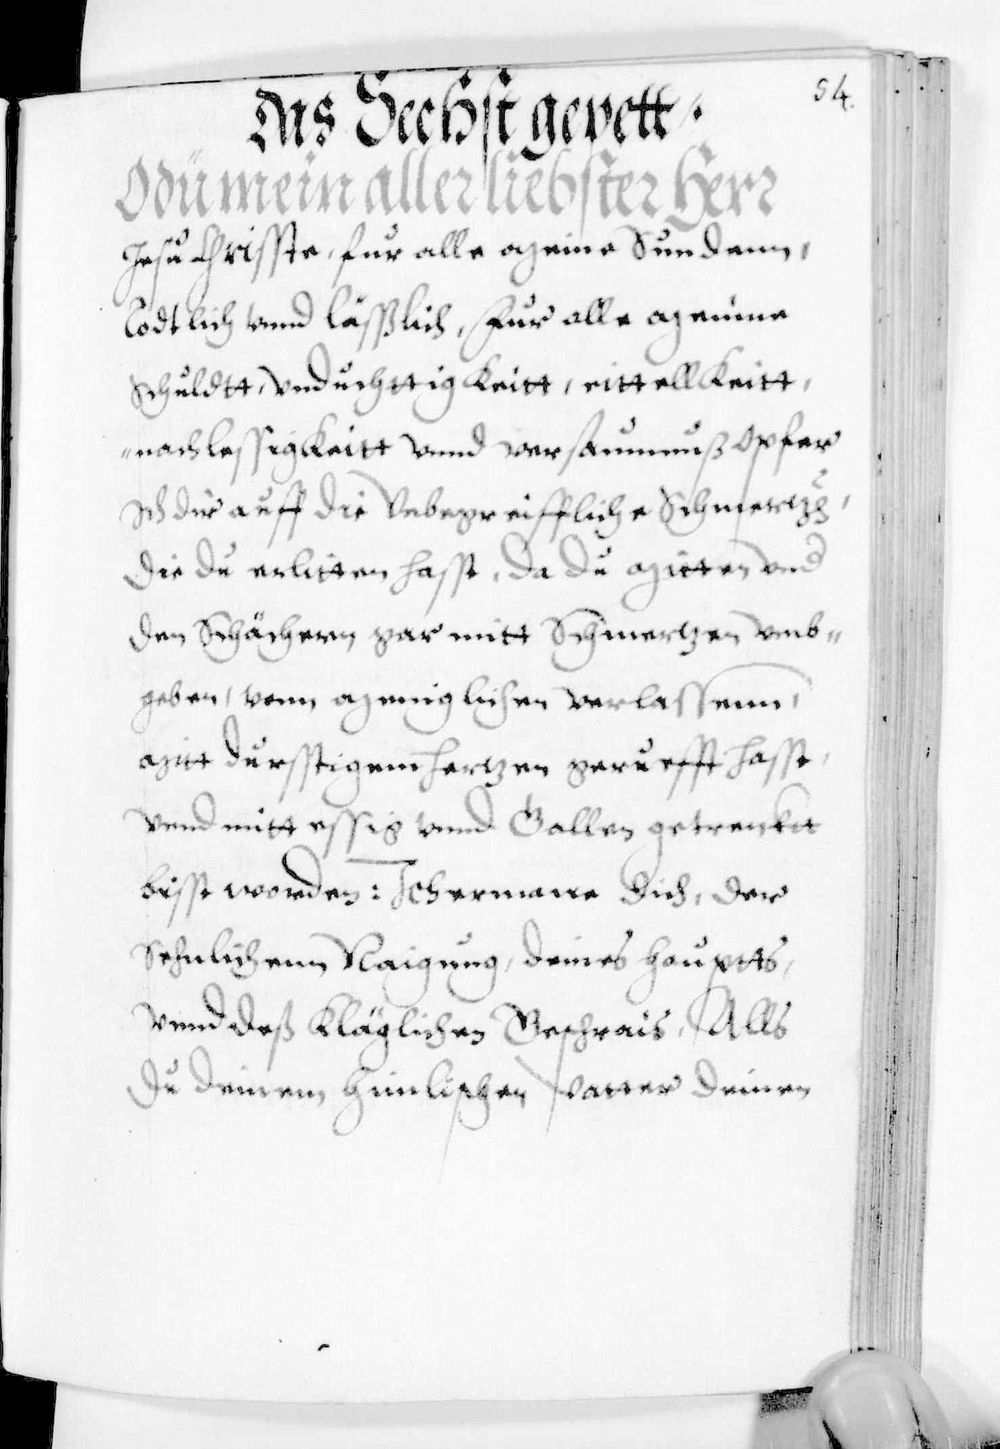 54.
Das Sechst gepett.
O dü mein aller liebster Herr
Jesu Christe, fur alle meine Sundenn,
Todtlich vnnd läßlich, fur alle meine
Schuldtt, vnduchttigkeitt, eittellkeitt,
nachlessigkeitt vnnd versaumnuß opfer
Ich dir auff die Vnbegreiffliche Schmertzen,
die du erlitten hasst, da du mitten vnd
den Schächern gar mitt Schmertzen vmb=
geben, vonn meniglichen verlassenn,
mitt durstigem hertzen gerüefft hasst,
vnnd mitt essig vnnd Gallen getrenktt
bisst worden: Ich ermane dich, der
Sehnlichenn Naigung, deines hauptts,
vnnd deß kläglichen Geschrais, Alls
du deinem himlischen Vatter deinen